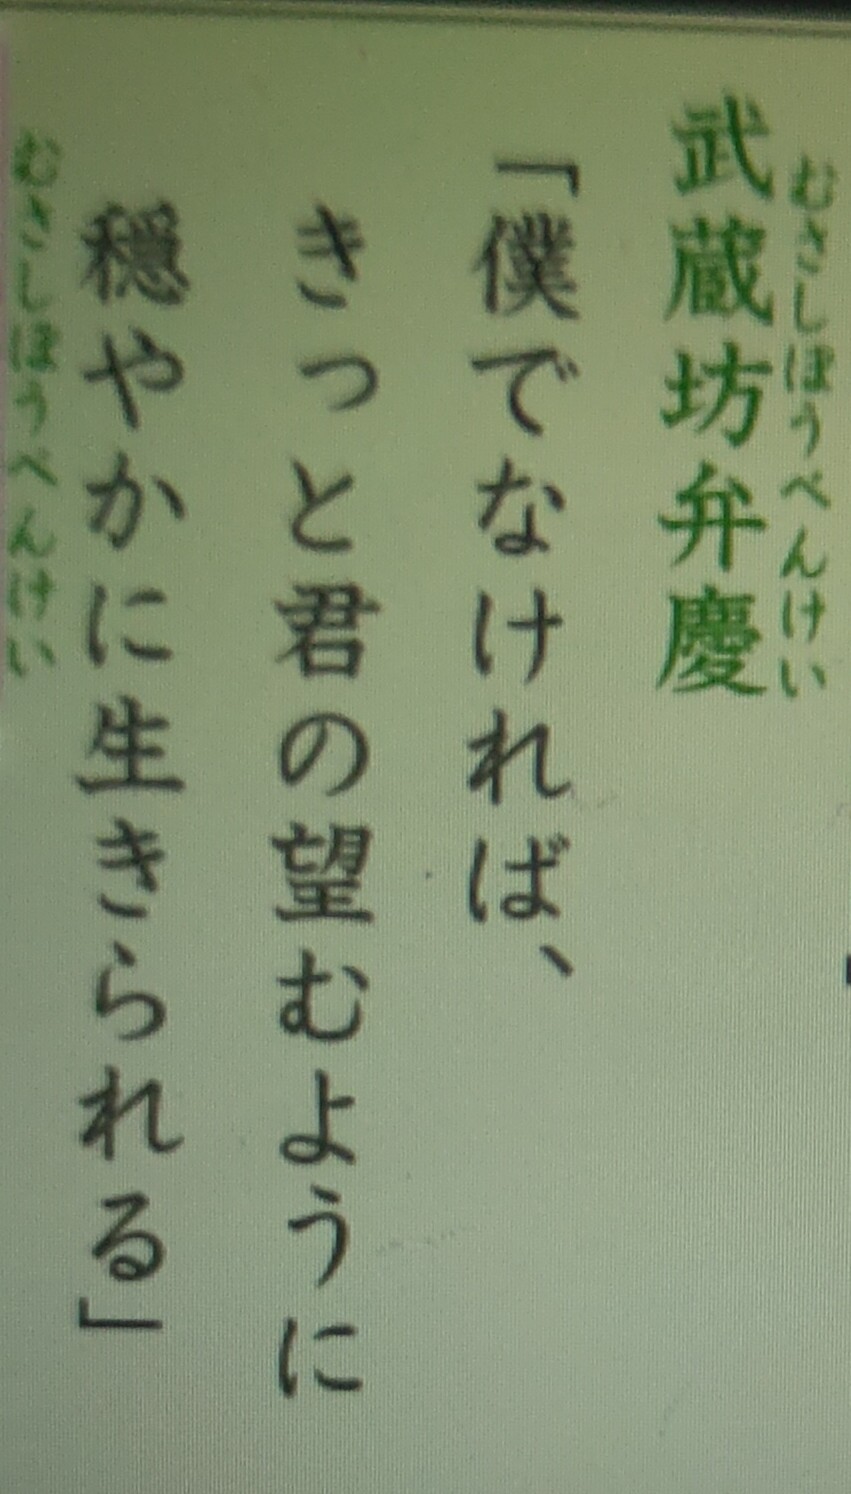 むさしぼうべんけい
武蔵坊弁慶
「僕でなければ、
きっと君の望むように
穏やかに生きられる」
むさしぼうべんけい